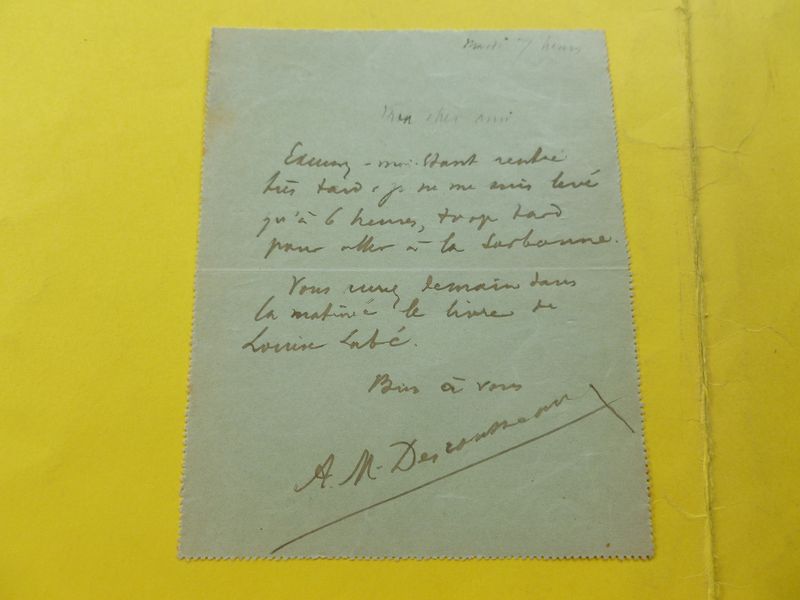 Mardi 7 heures
Mon cher ami
Excusez-moi. Étant rentré
très tard, je ne me suis levé
qu'à 6 heures, trop tard
pour aller à la Sorbonne.
Vous aurez demain dans
la matinée le livre de
Louise Labé.
Bien à vous
A. M. Desrousseaux